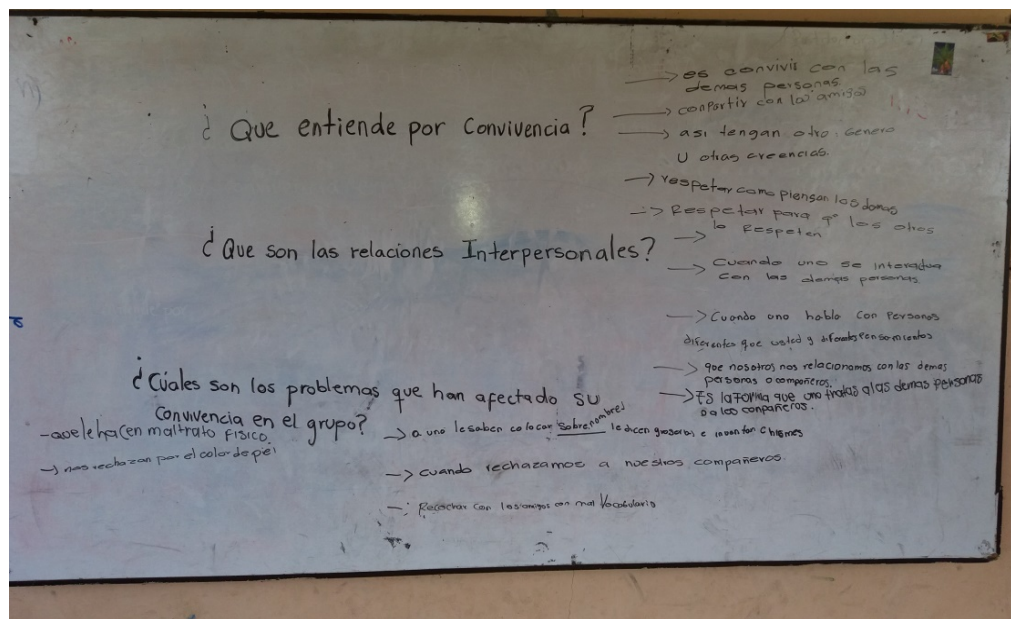 ¿ Que entiende por Convivencia?
→ es convivir con las
demas personas.
→ conpartir con los amigos
→ asi tengan otro genero
U otras creencias.
→ respetar como piensan los demas
→ Respetar para q° los otros
→ lo Respeten
¿Que son las relaciones Interpersonales?
→ Cuando uno se interactua
con las demas personas
→ Cuando uno habla con Personas
diferentes que usted y diferentes Pensamientos
→ que nosotros nos relacionamos con las demas
personas o compañeros.
→ ES la Forma que uno tratas a las demas personas
o a los conpañeros.
¿Cúales son los problemas que han afectado su
Convivencia en el grupo?
- le hacen maltrato FISICO.
→ nos rechazan por el color de pel
→ a uno le saben colocar Sobrenombres le dicen groserias e inventan chismes
→ cuando rechazamos a nuestros compañeros
→ Recochar con los amigos con mal Vocabulario